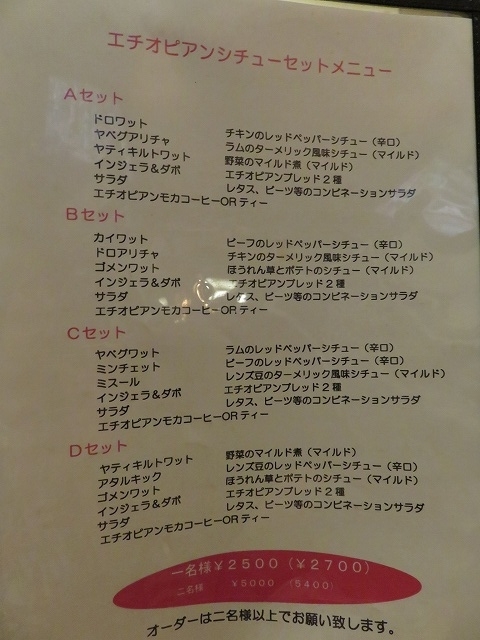 エチオピアンシチューセットメニュー
Aセット
ドロワット チキンのレッドペッパーシチュー（辛口）
ヤベグアリチャ ラムのターメリック風味シチュー（マイルド）
ヤティキルトワット 野菜のマイルド煮（マイルド）
インジェラ＆ダボ エチオピアンブレッド２種
サラダ レタス、ビーツ等のコンビネーションサラダ
エチオピアンモカコーヒーORティー
Bセット
カイワット ビーフのレッドペッパーシチュー（辛口）
ドロアリチャ チキンのターメリック風味シチュー（マイルド）
ゴメンワット ほうれん草とポテトのシチュー（マイルド）
インジェラ＆ダボ エチオピアンブレッド２種
サラダ レタス、ビーツ等のコンビネーションサラダ
エチオピアンモカコーヒーORティー
Cセット
ヤベグワット ラムのレッドペッパーシチュー（辛口）
ミンチェット ビーフのレッドペッパーシチュー（辛口）
ミスール レンズ豆のターメリック風味シチュー（マイルド）
インジェラ＆ダボ エチオピアンブレッド２種
サラダ レタス、ビーツ等のコンビネーションサラダ
エチオピアンモカコーヒーORティー
Dセット
ヤティキルトワット 野菜のマイルド煮（マイルド）
アタルキック レンズ豆のレッドペッパーシチュー（辛口）
ゴメンワット ほうれん草とポテトのシチュー（マイルド）
インジェラ＆ダボ エチオピアンブレッド２種
サラダ レタス、ビーツ等のコンビネーションサラダ
エチオピアンモカコーヒーORティー
一名様￥２５００（￥２７００）
二名様 ￥5000 （5400）
オーダーは二名様以上でお願い致します。